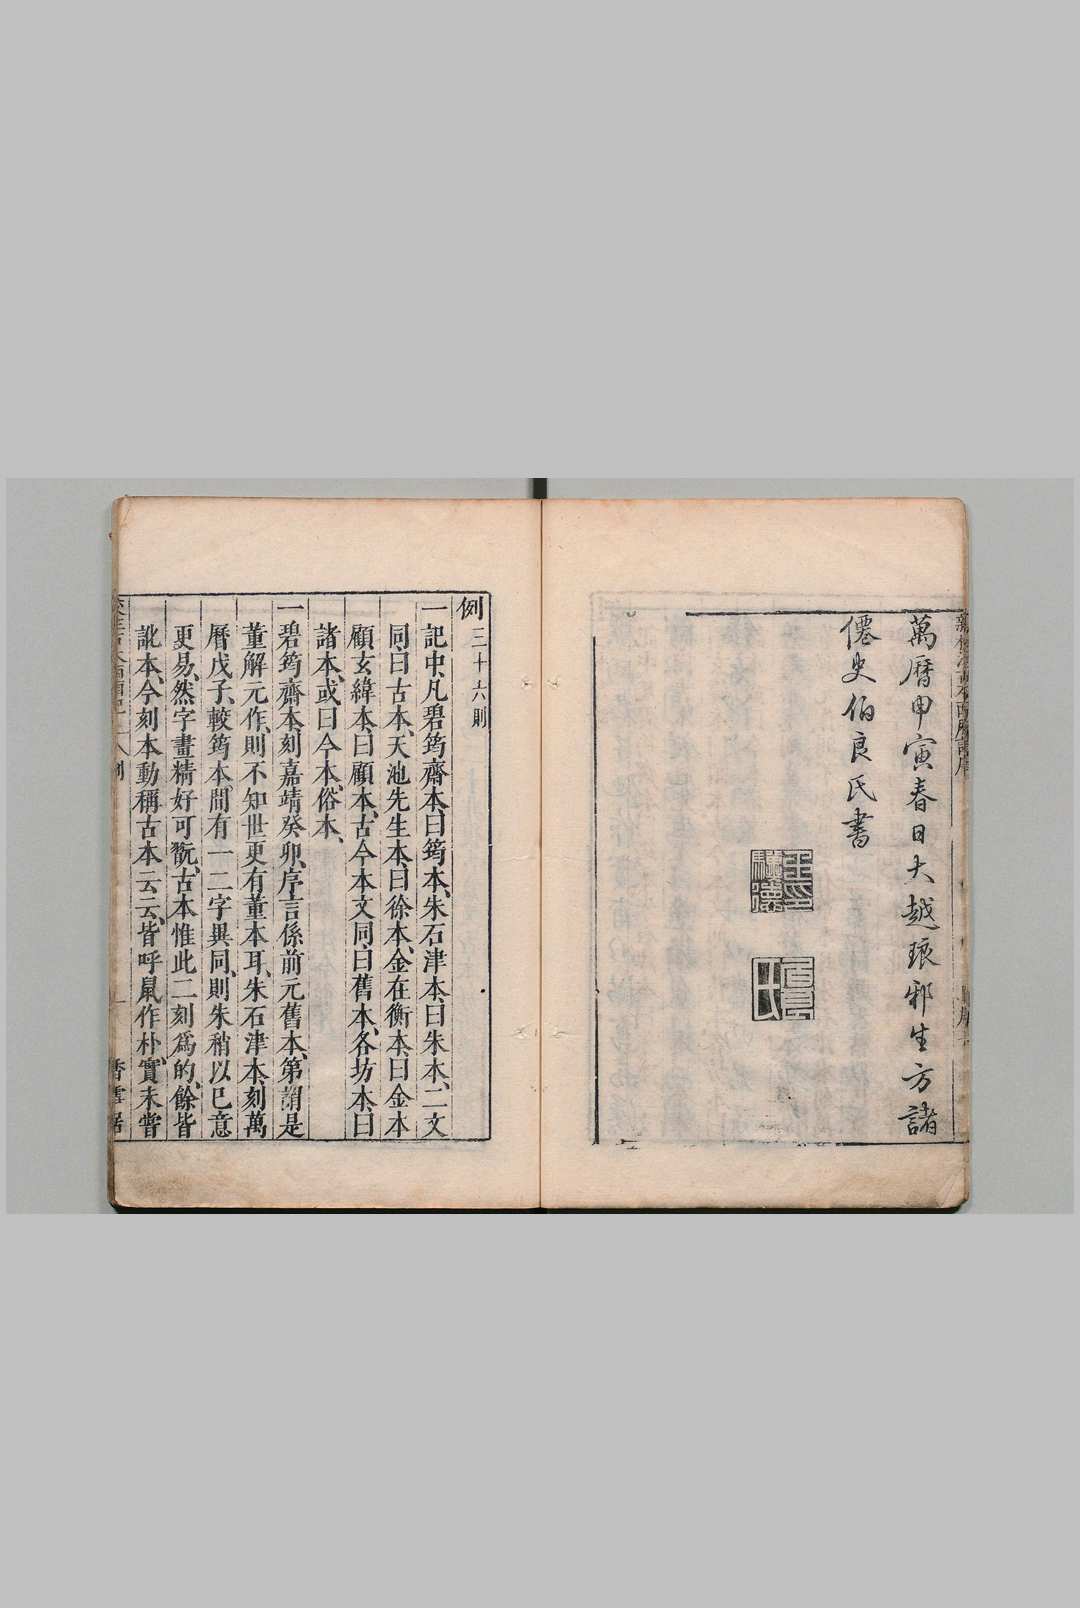 萬曆甲寅春日大越琅邪生方諸
僊史伯良氏書
王驥德印
例三十六則
一記中、凡碧筠齋本、曰筠本、朱石津本、曰朱本、二文
同、曰古本、天池先生本、曰徐本、金在衡本、曰金本
顧玄緯本、曰顧本、古今本文同、曰舊本、各坊本、曰
諸本、或曰今本、俗本、
一碧筠齋本、刻嘉靖癸卯、序言係前元舊本、第謂是
董解元作、則不知世更有董本耳、朱石津本、刻萬
曆戊子、較筠本間有一二字異同、則朱稍以已意
更易、然字畫精好可翫、古本惟此二刻爲的、餘皆
訛本、今刻本動稱古本云云、皆呼鼠作朴、實未嘗
香雪居